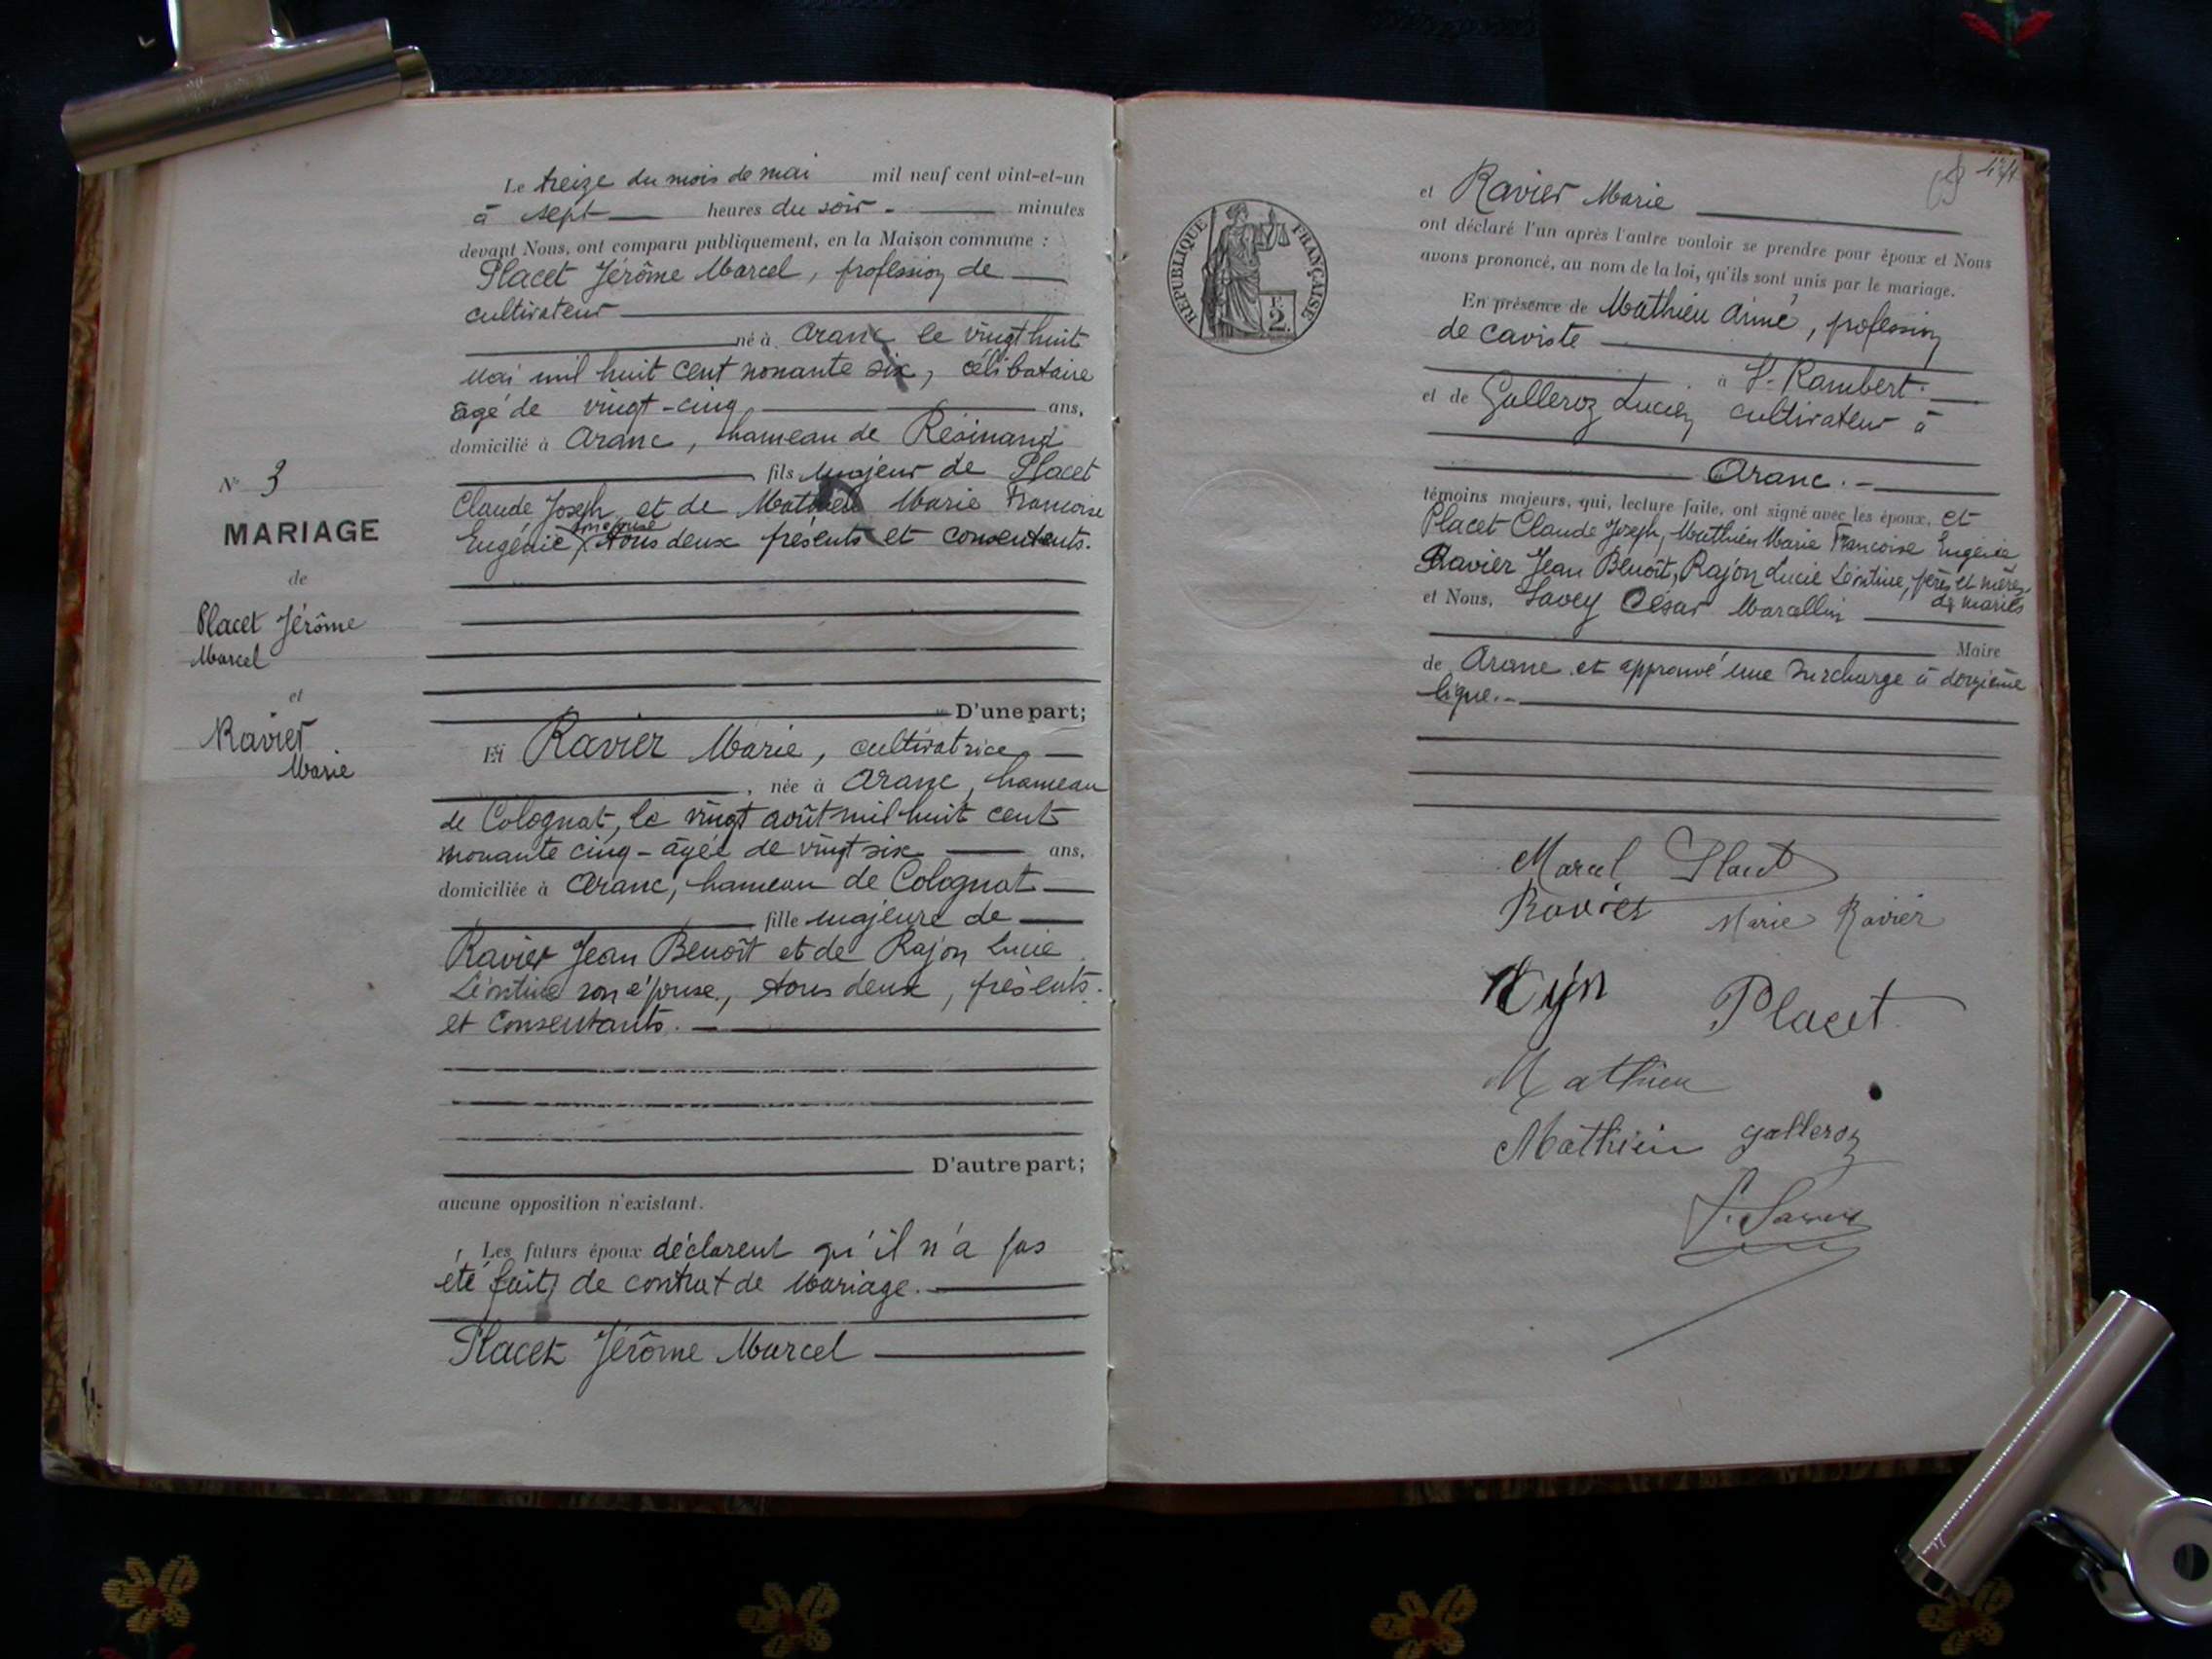 N° 3
MARIAGE
de
Placet Jérôme
Marcel
et
Ravier
Marie
Le treize du mois de mai mil neuf cent vint-et-un
à sept heures du soir minutes
devant Nous, ont comparu publiquement, en la Maison commune :
Placet Jérôme Marcel, profession de
cultivateur
né à Aranc le vingt huit
Mai mil huit cent nonante six, célibataire
âgé de vingt-cinq ans,
domicilié à Aranc, hameau de Résinand
fils Majeur de Placet
Claude Joseph et de Mathieu Marie Françoise
son épouse
Eugénie, tous deux présents et consentants.
D'une part;
Et Ravier Marie, cultivatrice
, née à Aranc, hameau
de Colognat, le vingt août mil huit cent
nonante cinq - âgée de vingt six ans,
domiciliée à Aranc, hameau de Colognat
fille majeure de
Ravier Jean Benoît et de Rajon Lucie
Léontine son épouse, tous deux, présents
et consentants.
D'autre part;
aucune opposition n'existant.
Les futurs époux déclarent qu'il n'a pas
été fait de contrat de Mariage.
Placet Jérôme Marcel
RÉPUBLIQUE FRANÇAISE
2 F.
et Ravier Marie
ont déclaré l'un après l'autre vouloir se prendre pour époux et Nous
avons prononcé, au nom de la loi, qu'ils sont unis par le mariage.
En présence de Mathieu Aimé, profession
de caviste
à St Rambert.
et de Galleroz Lucien cultivateur à
Aranc.
témoins majeurs, qui, lecture faite, ont signé avec les époux, et
Placet Claude Joseph, Mathieu Marie Françoise Eugénie
Ravier Jean Benoît, Rajon Lucie Léontine, pères et mères
des mariés
et Nous, Savey César Marcellin
Maire
de Aranc et approuvé une surcharge à douzième
ligne.
Marcel Placet
Ravier Marie Ravier
Placet
Mathieu
Mathieu galleroz
Savey